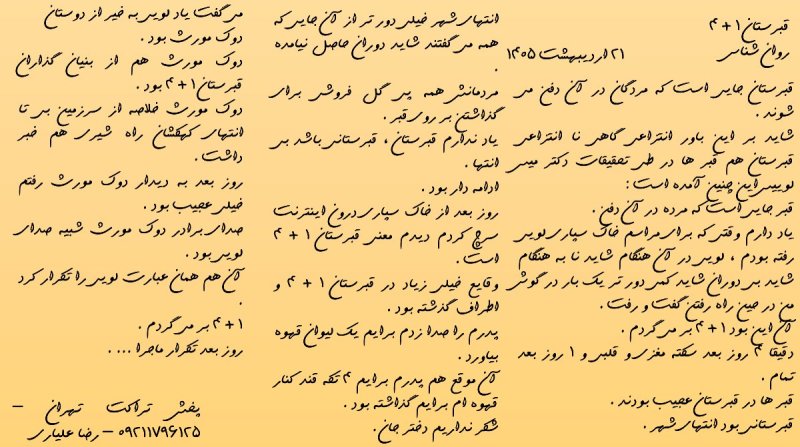 قبرستان ۱ + ۴
روان شناسی
۲۱ اردیبهشت ۱۴۰۵
قبرستان جایی است که مردگان در آن دفن می
شوند .
شاید بر این باور انتزاعی گاهی نا انتزاعی
قبرستان هم قبر ها در طی تحقیقات دکتر میسی
لوییس این چنین آمده است :
قبر جایی است که مرده در آن دفن .
یاد دارم وقتی که برای مراسم خاک سپاری لویی
رفته بودم ، لویی در آن هنگام شاید نا به هنگام
شاید بی دوران شاید کمی دور تر یک بار در گوش
من در حین راه رفتن گفت و رفت .
آن این بود ۱ + ۴ بر می گردم .
دقیقا ۴ روز بعد سکته مغزی و قلبی و ۱ روز بعد
تمام .
قبر ها در قبرستان عجیب بودند .
قبرستانی بود انتهای شهر .
انتهای شهر خیلی دور تر از آن جایی که
همه می گفتند شاید دوران حاصل نیامده
.
مردمانش همه پی گل فروشی برای
گذاشتن بر روی قبر .
یاد ندارم قبرستان ، قبرستانی باشد بی
انتها .
ادامه دار بود .
روز بعد از خاک سپاری درون اینترنت
سرچ کردم دیدم معنی قبرستان ۱ + ۴
است .
وقایع خیلی زیاد در قبرستان ۱ + ۴ و
اطراف گذشته بود .
پدرم را صدا زدم برایم یک لیوان قهوه
بیاورد .
آن موقع هم پدرم برایم ۴ تکه قند کنار
قهوه ام برایم گذاشته بود .
شکر نداریم دختر جان .
می گفت یاد لویی به خیر از دوستان
دوک مورث بود .
دوک مورث هم از بنیان گذاران
قبرستان ۱ + ۴ بود .
دوک مورث خلاصه از سرزمین بی تا
انتهای کهکشان راه شیری هم خبر
داشت .
روز بعد به دیدار دوک مورث رفتم
خیلی عجیب بود .
صدای برادر دوک مورث شبیه صدای
لویی بود .
آن هم همان عبارت لویی را تکرار کرد
.
۱ + ۴ بر می گردم .
روز بعد تکرار ماجرا ... .
پخش تراکت تهران –
۰۹۲۱۱۷۹۶۱۲۵ – رضا علیاری